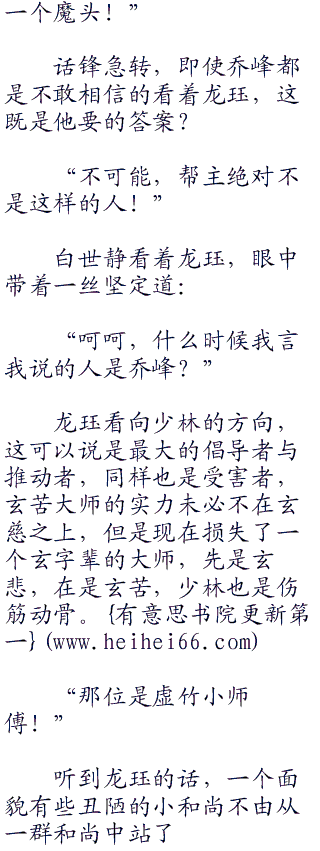 一个魔头！”
话锋急转，即使乔峰都
是不敢相信的看着龙珏，这
既是他要的答案？
“不可能，帮主绝对不
是这样的人！”
白世静看着龙珏，眼中
带着一丝坚定道：
“呵呵，什么时候我言
我说的人是乔峰？”
龙珏看向少林的方向，
这可以说是最大的倡导者与
推动者，同样也是受害者，
玄苦大师的实力未必不在玄
慈之上，但是现在损失了一
个玄字辈的大师，先是玄
悲，在是玄苦，少林也是伤
筋动骨。{有意思书院更新第
一}(www.heihei66.com)
“那位是虚竹小师
傅！”
听到龙珏的话，一个面
貌有些丑陋的小和尚不由从
一群和尚中站了